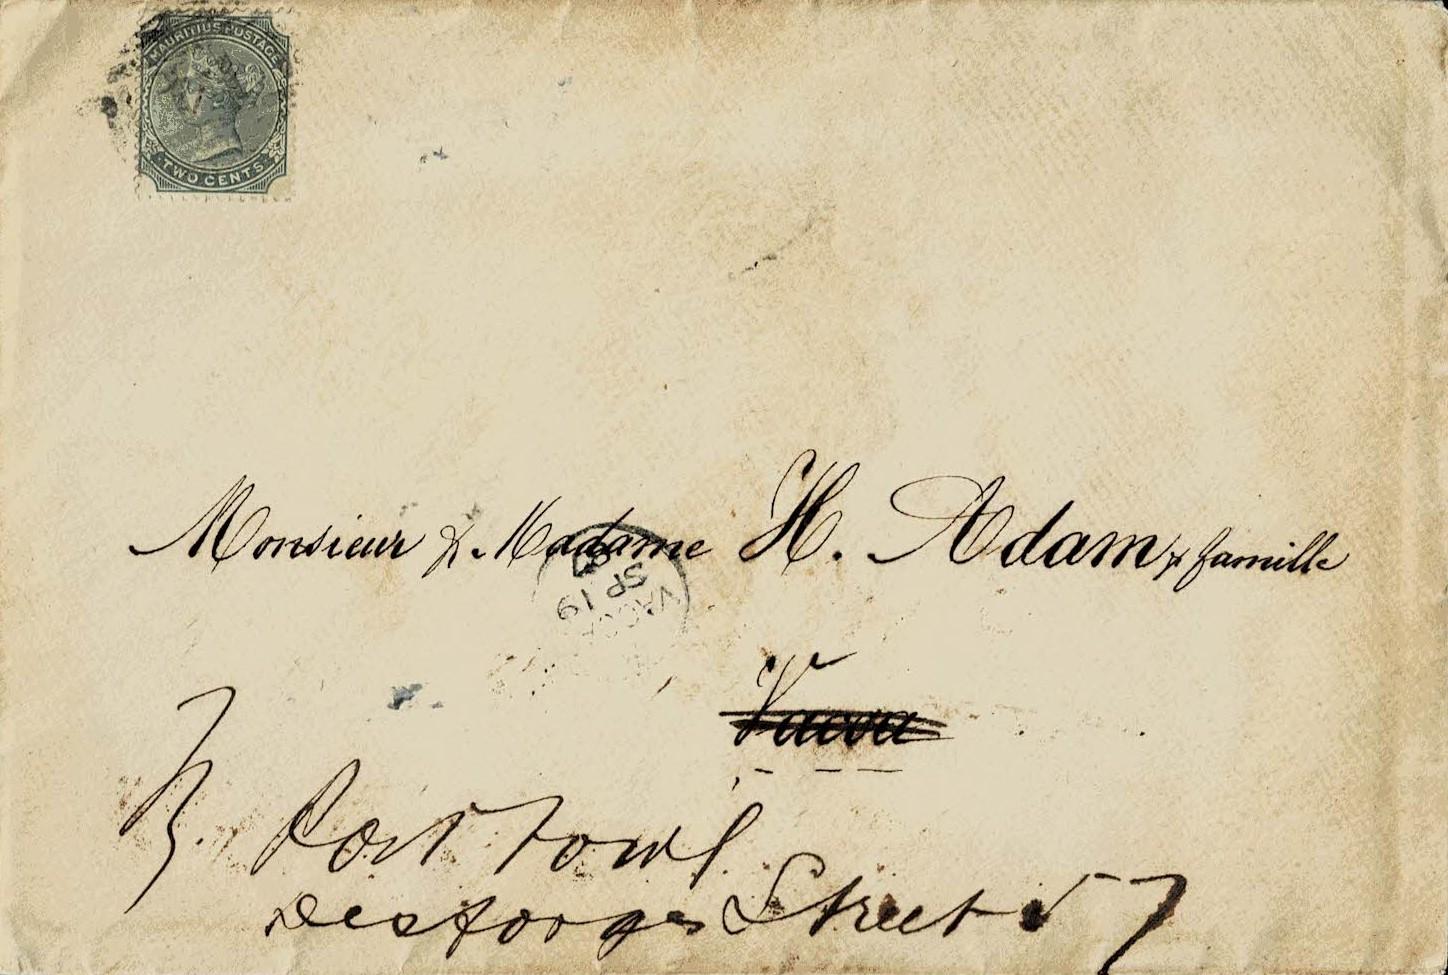 MAURITIUS POSTAGE
TWO CENTS
Monsieur & Madame H. Adam & famille
SP 19
Vacoa
Port Louis
Desforges Street 57